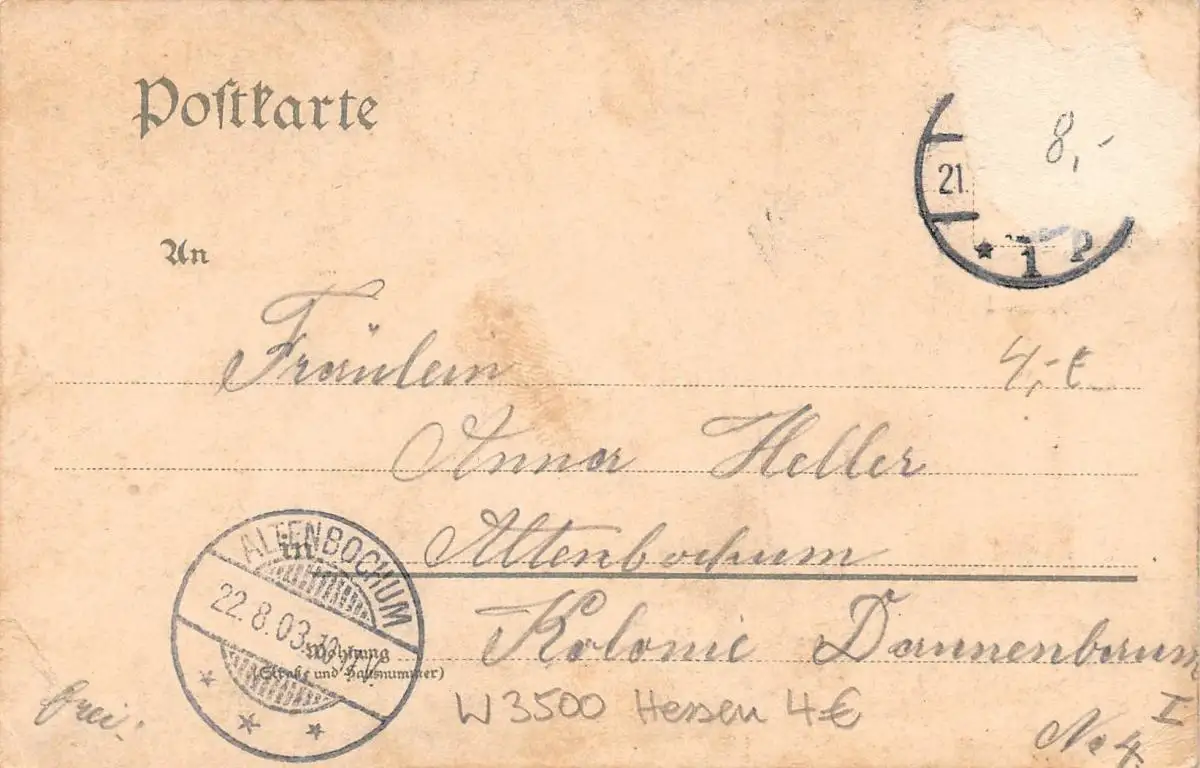 Postkarte
8,-
21.
* 1 P
An
Fräulein
4,-€
Anna Heller
ALTENBOCHUM
in
Altenbochum
22.8.03
Kolonie Dannenbaum
Wohnung
(Straße und Hausnummer)
I
frei.
W3500 Hessen 4€
No 4